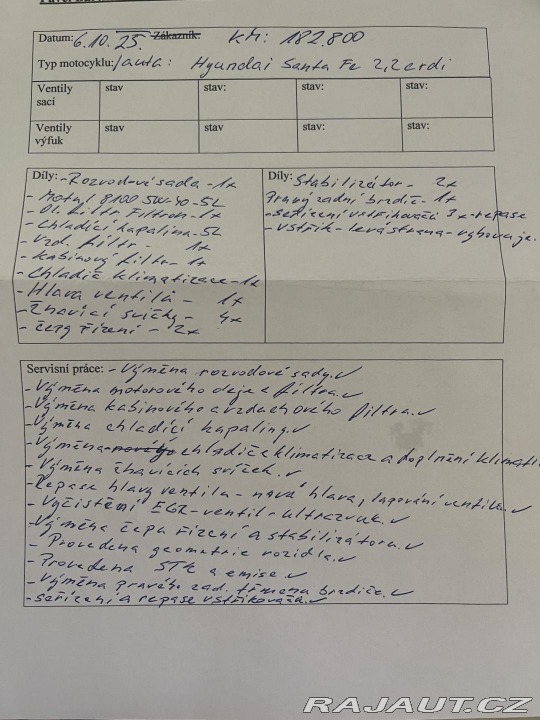 Datum: 6.10.25. Zákazník: KM: 182.800
Typ motocyklu: /auta: Hyundai Santa Fe 2,2 crdi
Ventily sací stav stav: stav: stav:
Ventily výfuk stav stav stav: stav:
Díly: - Rozvodová sada - 1x
- Motul 8100 5W-40 - 5L
- Ol. filtr Filtron - 1x
- Chladící kapalina - 5L
- Vzd. filtr - 1x
- Kabinový filtr - 1x
- Chladič klimatizace - 1x
- Hlava ventilů - 1x
- Žhavící svíčky - 4x
- čepy řízení - 2x
Díly: Stabilizátor - 2x
Pravý zadní brzdič - 1x
- seřízení vstřikovačů 3x - repase
- vstřik - levá strana - vyhovuje.
Servisní práce: - Výměna rozvodové sady. ✓
- Výměna motorového oleje a filtra. ✓
- Výměna kabinového a vzdachového filtra. ✓
- Výměna chladící kapaliny. ✓
- Výměna nového chladiče klimatizace a doplnění klimati
- Výměna žhavících svíček. ✓
- Repase hlavy ventilu - nová hlava, lapování ventilů. ✓
- Vyčistění EGR - ventil - ultrazvuk. ✓
- Výměna čepu řízení a stabilizátoru. ✓
- Provedena geometrie vozidla. ✓
- Provedena STK a emise. ✓
- Výměna pravého zad. třmena brzdiče. ✓
- seřízení a repase vstřikovačů ✓
RAJAUT.CZ